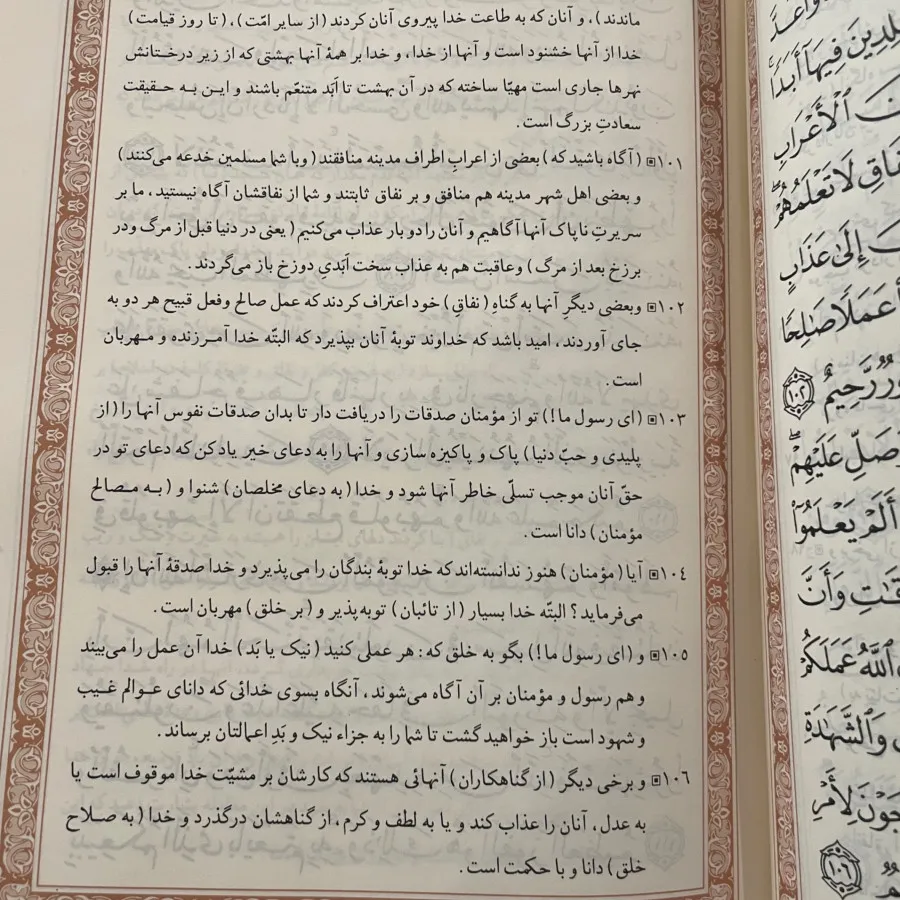 ماندند)، و آنان که به طاعت خدا پیروی آنان کردند (از سایر امّت)، (تا روز قیامت)
خدا از آنها خشنود است و آنها از خدا، و خدا بر همهٔ آنها بهشتی که از زیر درختانش
نهرها جاری است مهیّا ساخته که در آن بهشت تا اَبَد متنعّم باشند و این به حقیقت
سعادتِ بزرگ است.
۱۰۱ (آگاه باشید که) بعضی از اعرابِ اطراف مدینه منافقند (و با شما مسلمین خدعه می‌کنند)
و بعضی اهل شهر مدینه هم منافق و بر نفاق ثابتند و شما از نفاقشان آگاه نیستید، ما بر
سریرتِ ناپاک آنها آگاهیم و آنان را دو بار عذاب می‌کنیم (یعنی در دنیا قبل از مرگ و در
برزخ بعد از مرگ) و عاقبت هم به عذاب سخت اَبَدیِ دوزخ باز می‌گردند.
۱۰۲ و بعضی دیگرِ آنها به گناهِ (نفاقِ) خود اعتراف کردند که عمل صالح و فعل قبیح هر دو به
جای آوردند، امید باشد که خداوند توبهٔ آنان بپذیرد که البتّه خدا آمرزنده و مهربان
است.
۱۰۳ (ای رسول ما!) تو از مؤمنان صدقات را دریافت دار تا بدان صدقات نفوس آنها را (از
پلیدی و حبّ دنیا) پاک و پاکیزه سازی و آنها را به دعای خیر یاد کن که دعای تو در
حقّ آنان موجب تسلّی خاطر آنها شود و خدا (به دعای مخلصان) شنوا و (به مصالح
مؤمنان) دانا است.
۱۰٤ آیا (مؤمنان) هنوز ندانسته‌اند که خدا توبهٔ بندگان را می‌پذیرد و خدا صدقهٔ آنها را قبول
می‌فرماید؟ البتّه خدا بسیار (از تائبان) توبه‌پذیر و (بر خلق) مهربان است.
۱۰۵ و (ای رسول ما!) بگو به خلق که: هر عملی کنید (نیک یا بَد) خدا آن عمل را می‌بیند
و هم رسول و مؤمنان بر آن آگاه می‌شوند، آنگاه بسوی خدائی که دانای عوالم غیب
و شهود است باز خواهید گشت تا شما را به جزاء نیک و بَدِ اعمالتان برساند.
۱۰٦ و برخی دیگر (از گناهکاران) آنهائی هستند که کارشان بر مشیّت خدا موقوف است یا
به عدل، آنان را عذاب کند و یا به لطف و کرم، از گناهشان درگذرد و خدا (به صلاح
خلق) دانا و با حکمت است.
لِدِينَ فِيهَآ أَبَدًا
ٱلْأَعْرَابِ
لَا تَعْلَمُهُمْ
إِلَىٰ عَذَابٍ
عَمَلًا صَالِحًا
رَّحِيمٌ ۱۰۲
صَلِّ عَلَيْهِمْ
أَلَمْ يَعْلَمُوٓا۟
وَأَنَّ
ٱللَّهُ عَمَلَكُمْ
وَٱلشَّهَٰدَةِ
جَوْنَ لِأَمْرِ
۱۰٦